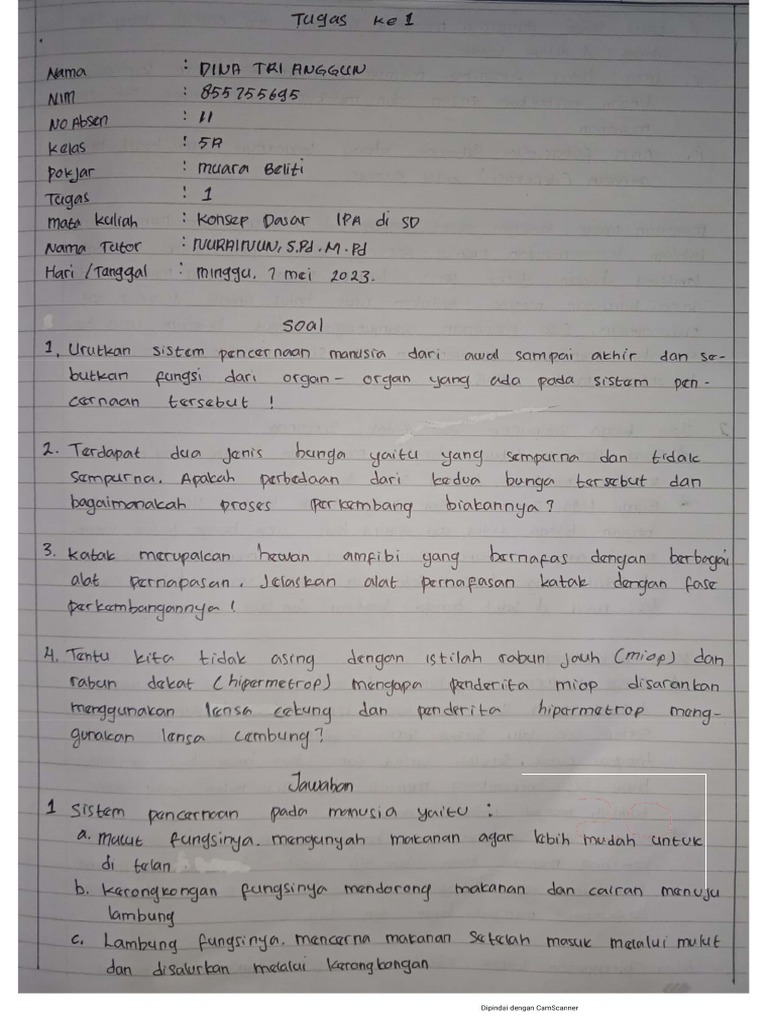 Tugas ke 1
Nama : DINA TRI ANGGUN
NIM : 855755695
No Absen : 11
Kelas : 5A
Pokjar : Muara Beliti
Tugas : 1
Mata kuliah : Konsep Dasar IPA di SD
Nama Tutor : NURAINUN, S.Pd. M.Pd
Hari / Tanggal : Minggu, 7 mei 2023.
Soal
1. Urutkan sistem pencernaan manusia dari awal sampai akhir dan se-
butkan fungsi dari organ - organ yang ada pada sistem pen-
cernaan tersebut !
2. Terdapat dua jenis bunga yaitu yang sempurna dan tidak
sempurna. Apakah perbedaan dari kedua bunga tersebut dan
bagaimanakah proses perkembang biakannya ?
3. Katak merupakan hewan amfibi yang bernafas dengan berbagai
alat pernapasan. Jelaskan alat pernafasan katak dengan fase
perkembangannya !
4. Tentu kita tidak asing dengan istilah rabun jauh (miop) dan
rabun dekat (hipermetrop) mengapa penderita miop disarankan
menggunakan lensa cekung dan penderita hipermetrop meng-
gunakan lensa cembung ?
Jawaban
1 Sistem pencernaan pada manusia yaitu :
a. Mulut fungsinya. mengunyah makanan agar lebih mudah untuk
di telan
b. Kerongkongan fungsinya mendorong makanan dan cairan menuju
lambung
c. Lambung fungsinya. mencerna makanan setelah masuk melalui mulut
dan disalurkan melalui kerongkongan
Dipindai dengan CamScanner